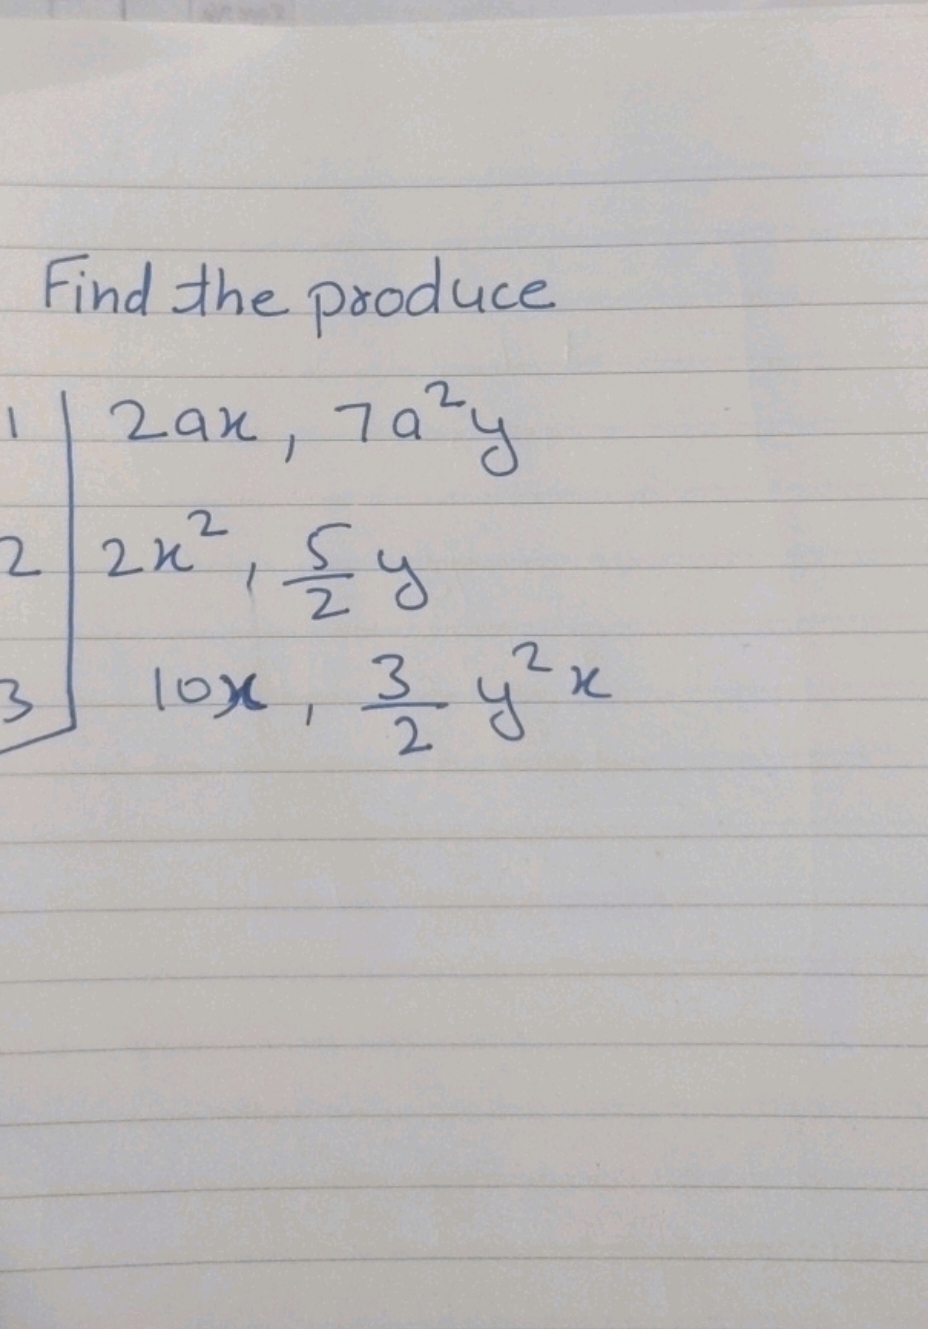 Find the produce
1 2ax, 7a²y
2 2x², 5/2 y
3 10x, 3/2 y²x